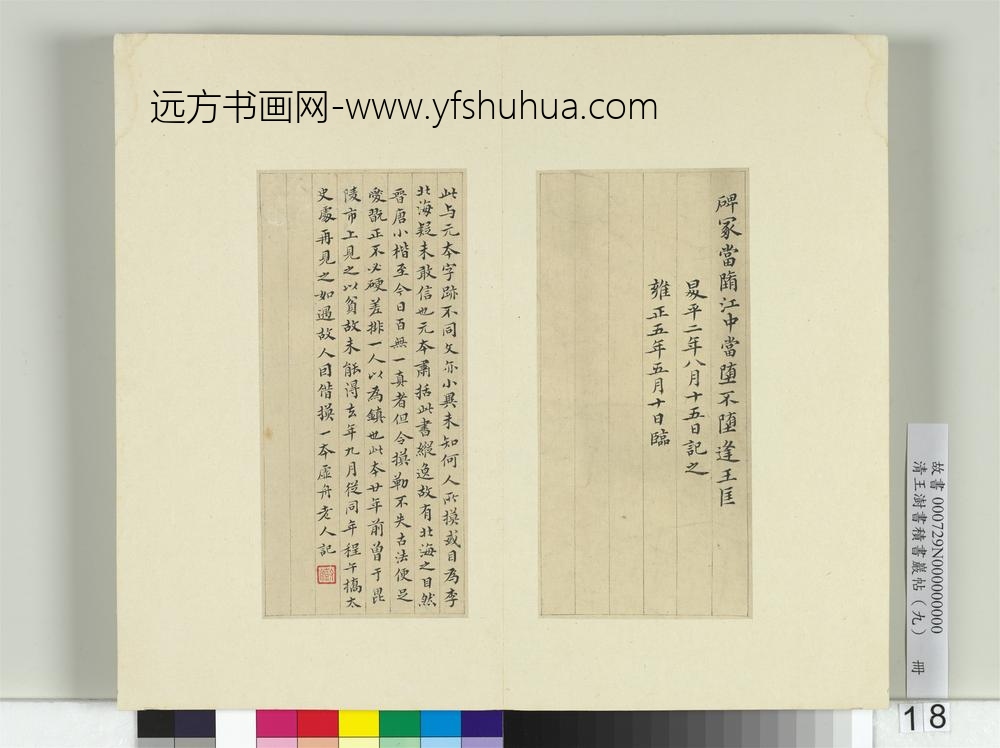 远方书画网-www.yfshuhua.com
碑冢當隋江中當墮不墮逢王匡
昇平二年八月十五日記之
雍正五年五月十日臨
此与元本字跡不同文亦小異未知何人所摸或目為李
北海疑未敢信也元本肅括此書縱逸故有北海之目然
晉唐小楷至今日百無一真者但令摸勒不失古法便足
愛翫正不必硬差排一人以為鎮也此本廿年前曾于毘
陵市上見之以貧故未能得去年九月從同年程午橋太
史處再見之如遇故人目借摸一本虛舟老人記
故書 000729N000000000
清王澍書積書巖帖（九） 冊
18